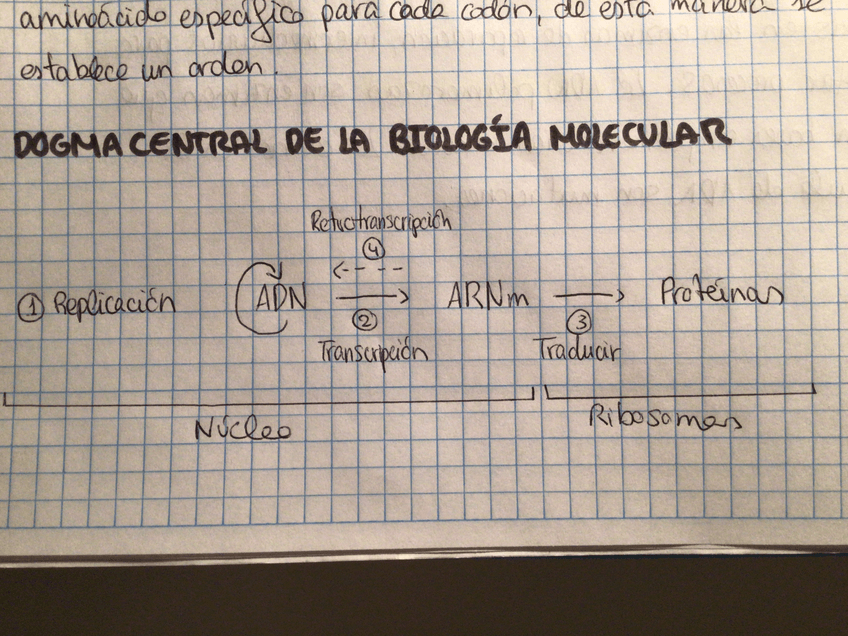 aminoácido específico para cada codón, de esta manera se
establece un orden.
DOGMA CENTRAL DE LA BIOLOGÍA MOLECULAR
Retrotranscripción
4
1 Replicación ADN ARNm Proteínas
2 3
Transcripción Traducir
Núcleo Ribosomas